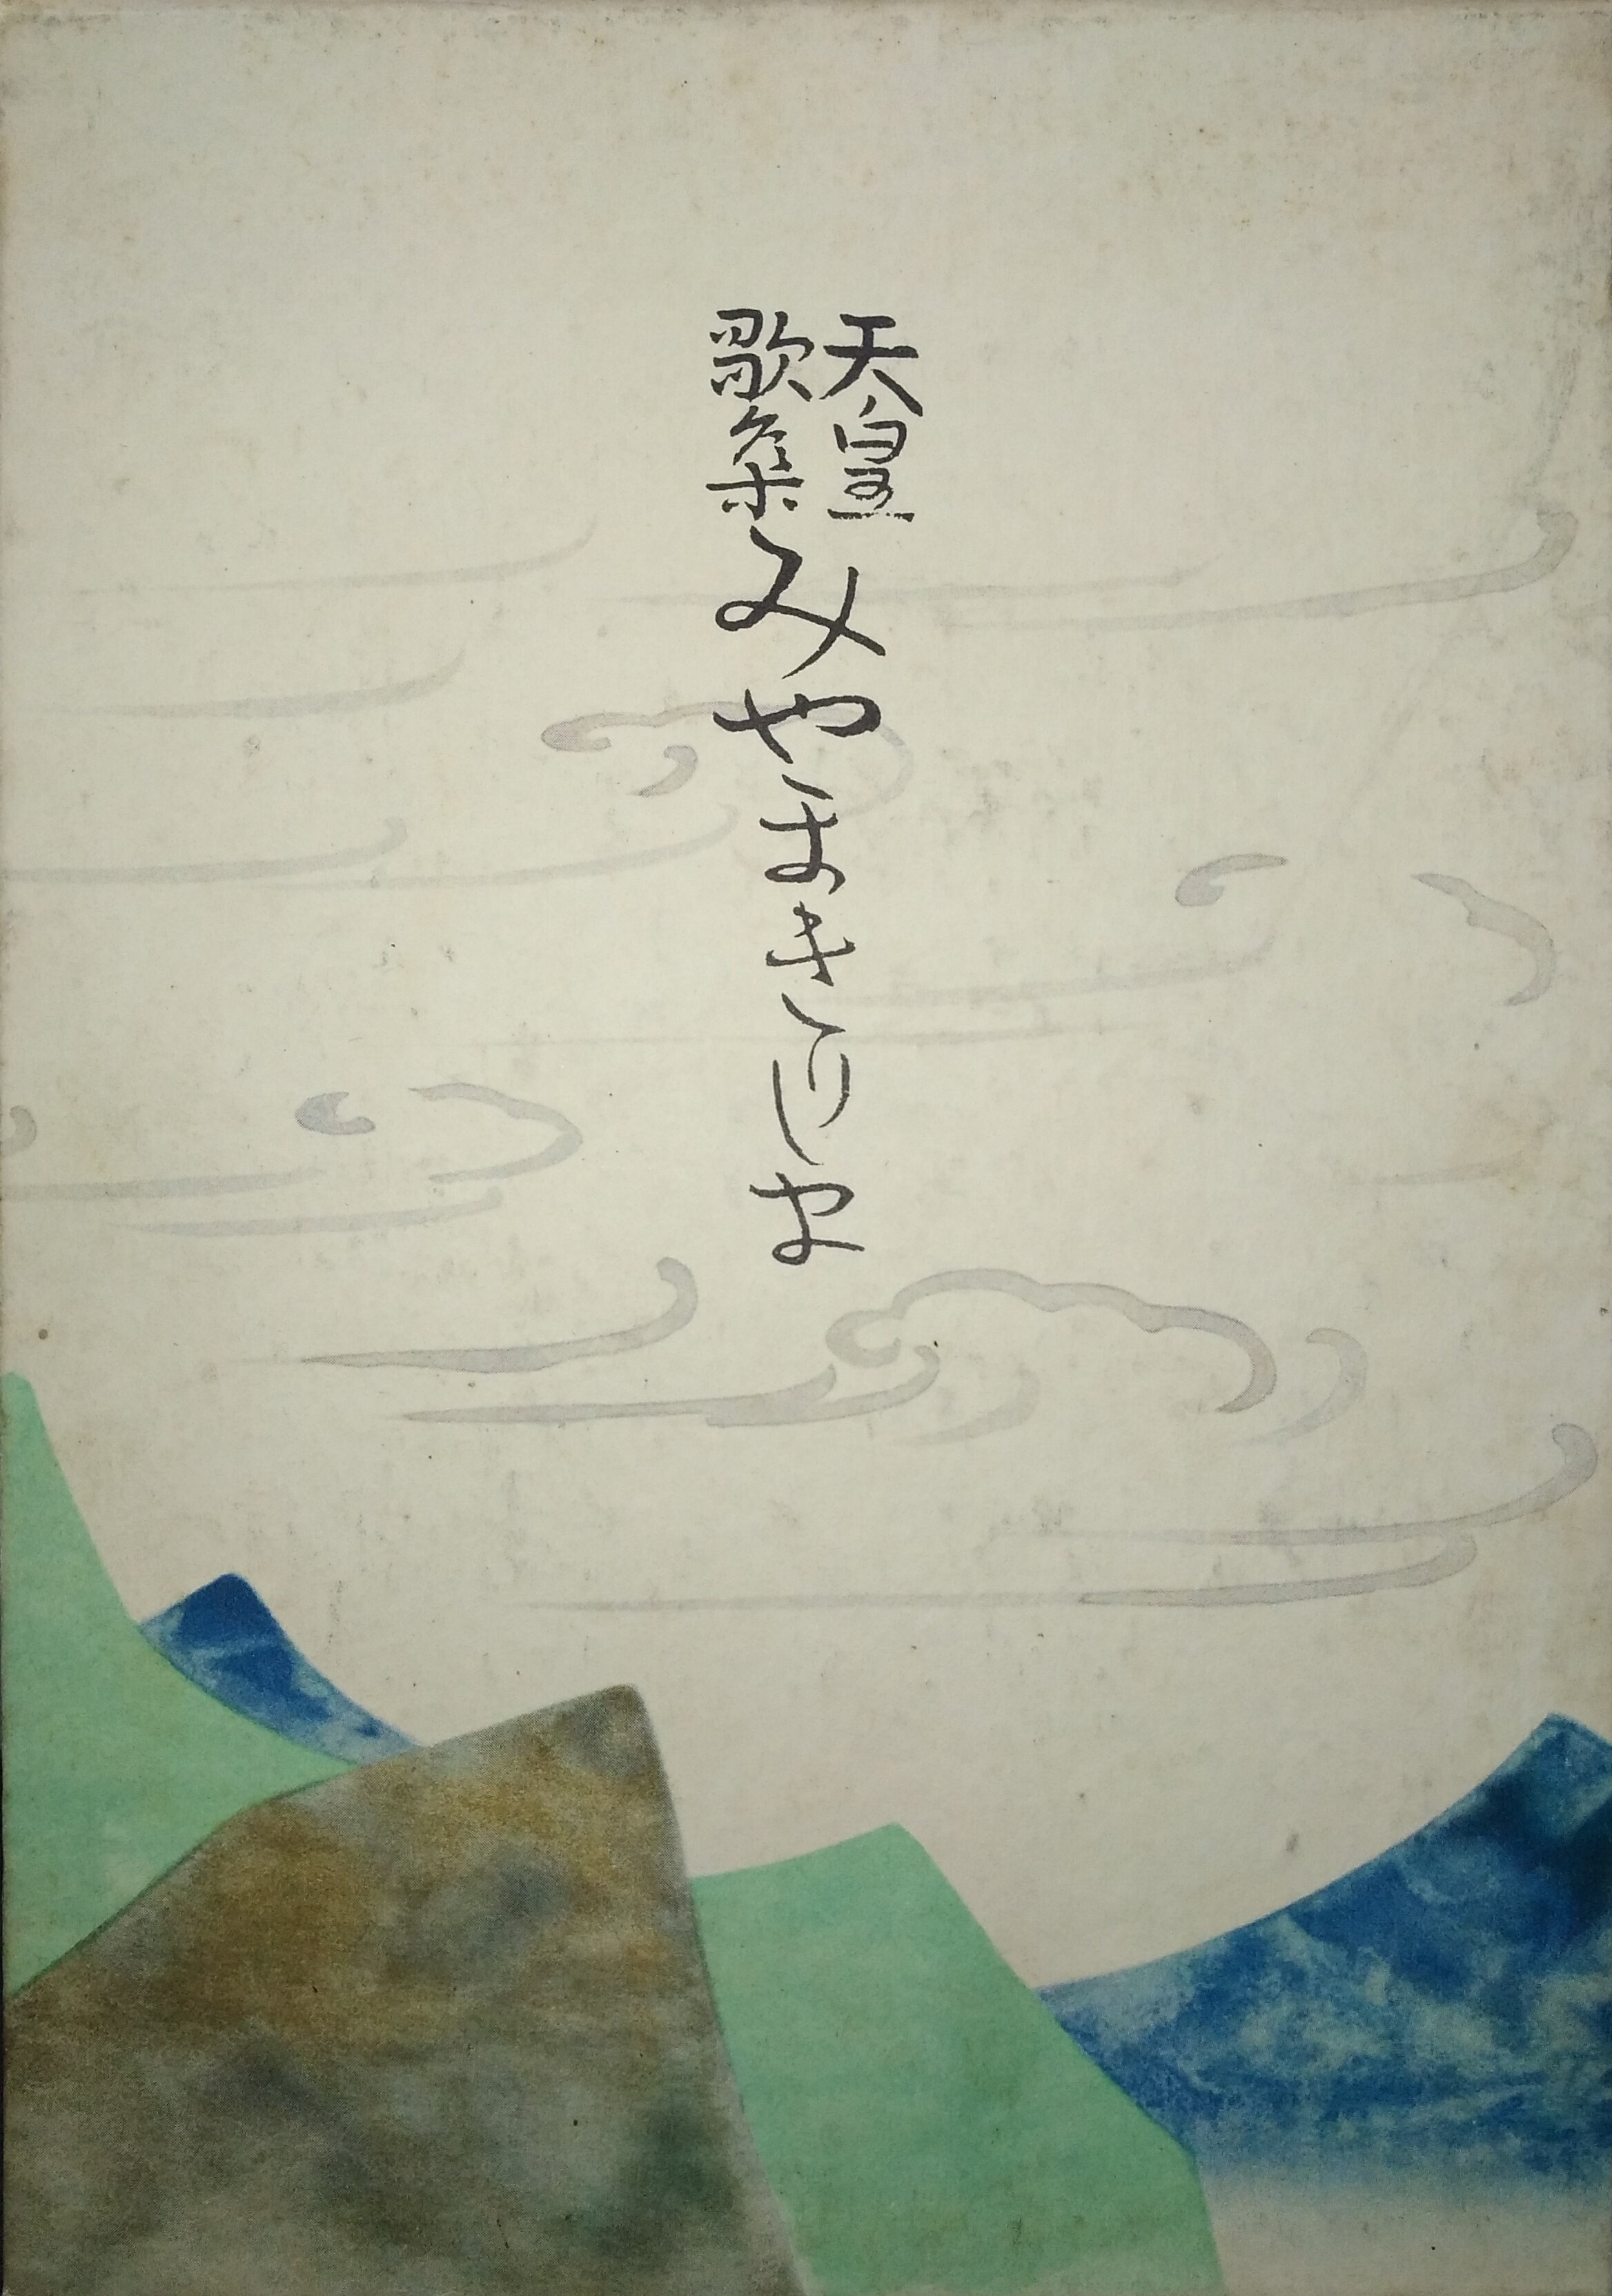 天皇
歌集
みやまきりしま